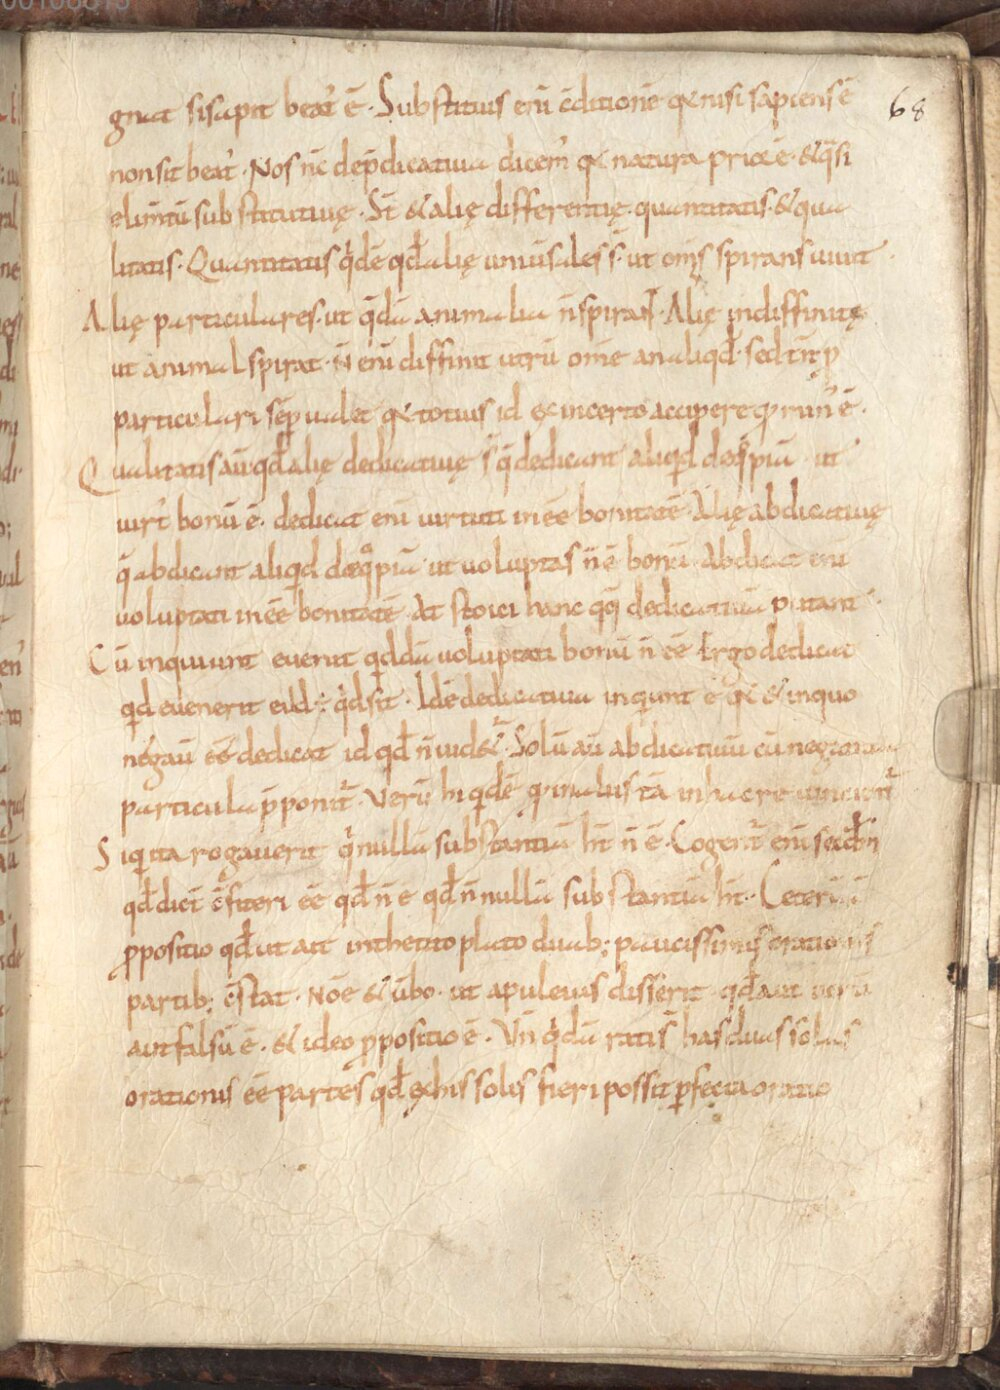 00108813
68
gnat sisapit beat᾽ ē· Substituis enī c̄ditionē qꝛ nisi sapiens ē
non sit beat᾽· Nos nc̄ dep̄dicatiua dicem᾽ qꝛ natura prior ē· & q̄si
elim̄tū substitutiuę· St̄ & alię differentię· quantitatis· & qua
litatis· Quantitatis q̇dē qđ alię uniūsales s̄· ut om̄s spirans uiuit
Alię particulares· ut q̄dā animalia n̄ spirant· Alię indiffinitę
ut animal spirat· n̄ enī diffinit utrū om̄e an aliqđ· sed tn̄ ꝓ
particulari sēp ualet qꝛ totius id ex incerto accipere qđ min᾽ ē·
Qualitatis aū qđ alię dedicatiuę s̄ q̄ dedicant aliqd de q̊piā· ut
uirt᾽ bonū ē· dedicat enī uirtuti inēē bonitatē· Alię abdicatiuę
q̄ abdicant aliqd de q̊piā· ut uoluptas n̄ ē bonū· Abdicat enī
uoluptati inēē bonitatē· At stoici hanc qq̨ dedicatiuā putant·
Cū inquiunt euenit qdā uoluptati bonū n̄ ēē Ergo dedicat
qd euenerit ei id ÷ q̇d sit· Idē dedicatiua inqunt ē qꝛ & in quo
negaū ēē dedicat id qđ n̄ uid&ᷣ· Solū aū abdicatiuū cū negatiua
particula p̄ponitᷣ· Verū hi qidē
Siq ita rogauerit q̇ nullā substantiā ht̄ n̄ ē· Cogent̄ enī
qđ dici c̄fiteri ēē qđ n̄ ē qđ n̄ nullā substantiā ht̄· Ceterū
ꝓpositio qđ ut ait in thetito plato duab; paucissimis orationis
partib; c̄stat· Noē & ūbo· ut apuleius disserit qđ aut uerū
aut falsū ē· & ideo ꝓpositio ē· Vn̄ q̇dā ratis̄ has duas solas
orationis ēē partes qđ ex his solis fieri possit ꝑfecta oratio